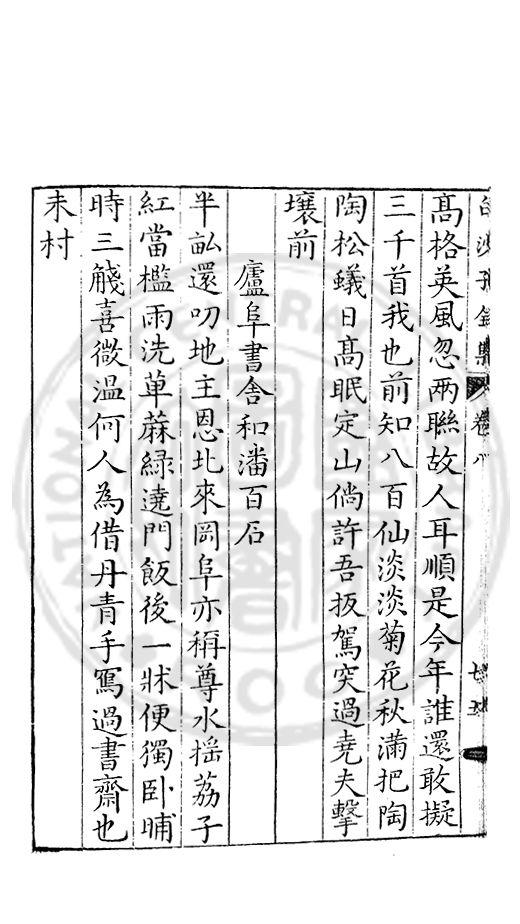 白沙子全集 卷八
髙格英風忽兩聮故人耳順是今年誰還敢擬
三千首我也前知八百仙淡淡菊花秋滿把陶
陶松蟻日髙眠定山倘許吾扳駕突過尭夫擊
壤前
廬阜書舍和潘百石
半畝還叨地主恩北來岡阜亦稱尊水揺荔子
紅當檻雨洗萆蔴緑遶門飯後一牀便獨卧晡
時三喜微温何人為借丹青手寫過書齋也
未村